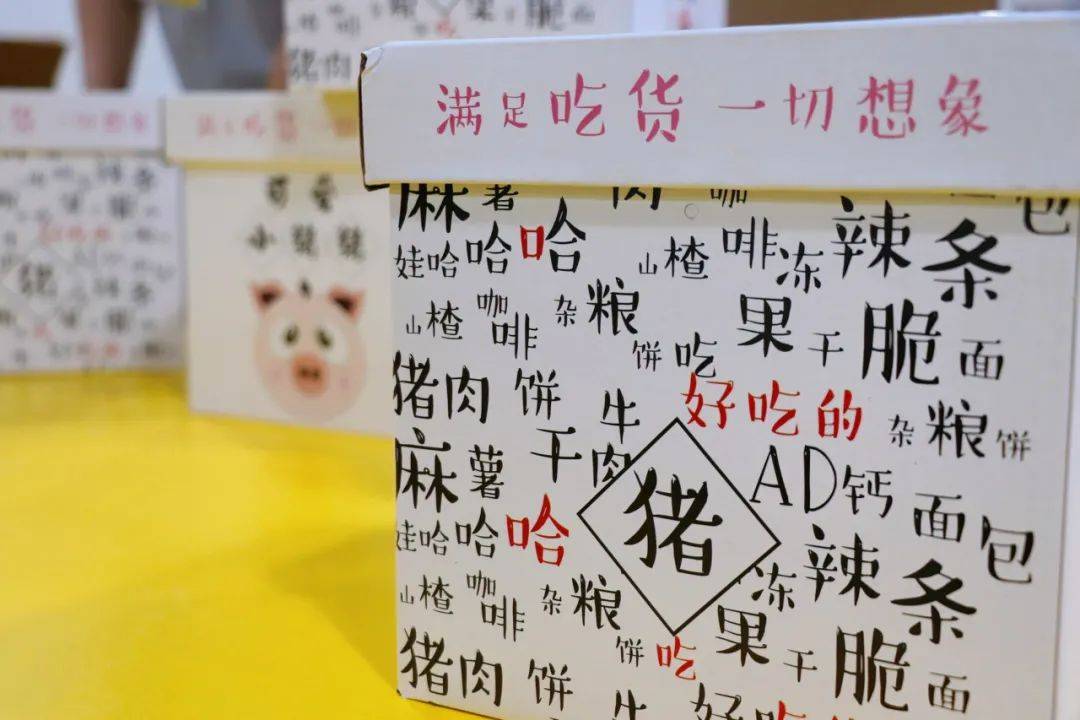 满足吃货 一切想象
麻薯 肉 咖 包
娃哈哈哈 山楂 啡 冻 辣条
山楂 咖啡 杂粮 饼 吃 果干 脆面
猪肉饼 牛 好吃的 杂粮饼
麻薯 干肉 猪 AD钙 面包
娃哈哈哈 冻 辣条
山楂 咖啡 杂粮 饼 吃 果干 脆面
猪肉饼 牛 好吃的
可爱
小猪猪
吃货 一切想象
猪肉 果 脆
猪